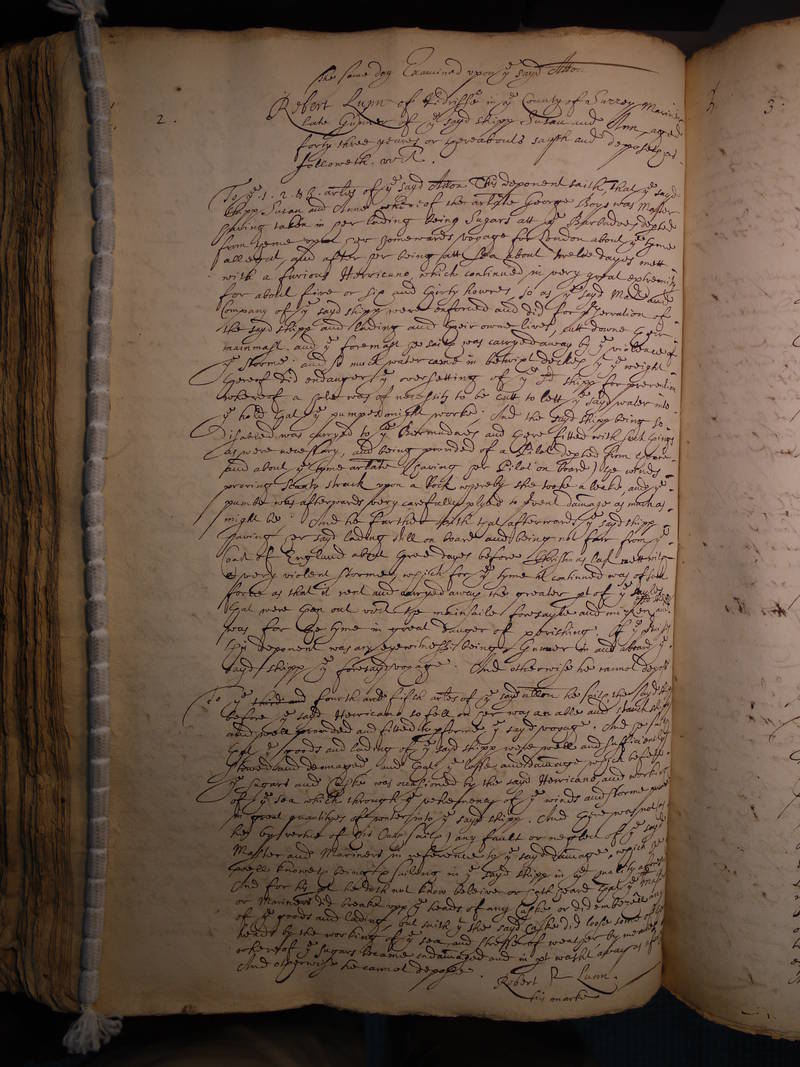 The same day Examined upon ye sayd Allon
2.
Robert Lunn of Redriffe in ye County of Surrey Mariner
late Gunner of ye sayd shipp Susan and Ann, aged
forty three yeares or thereabouts sayth and deposeth as
followeth. vizt.
To ye 1. 2. & 3. arles of ye sayd Allon This deponent saith, that ye sayd
shipp Susan and Anne whereof the arlate George Boys was Master
having taken in her lading being Sugars att ye Barbadoes depted
from thence upon her homewards voyage for London about ye tyme
allegat, and after her being att sea about twelve dayes mett
with a furious Herricano, which continued in very great extremity
for about five or six and thirty howres so as ye sayd Master and
Company of ye sayd shipp were enforced and did for pservation of
the sayd shipp and lading and their owne lives, cutt downe their
mainmast. and ye foremast he saith was carryed away by ye violence of
ye storme. and so much water came in betwixt decks yt ye weight
thereof did endanger ye oversetting of ye sd shipp for prevention
whereof a hole was of necessity to be cutt to lett ye sayd water into
ye hold that ye pumpes might worke. And the sayd shipp being so
disabled was carryed to ye Bermudaes and there fitted with such things
as were necessary, and being provided of a Pilot depted from thence
and about ye tyme arlate having her Pilot on board, the winds
proving scanty struck upon a Rock whereby she tooke a leake, and ye
pumpe was afterwards very carefully plyed to pvent damage as much as
might be. And he further saith that afterwards ye sayd shipp
having her sayd lading still on board and being not farr from ye
Coast of England about three dayes before Christmas last mett with
a very violent storme, which for ye tyme it continued was of such
force as that it rent and carryed away the greater pt of ye sayles
that were then out vizt the mainsaile foresayle and mizen, and
was for the tyme in great danger of perishing. Of ye premisses
this deponent was an eyewitnes being Gunner in and aboard ye
sayd shipp ye foresayd voyage. And otherwise he cannot depose
To ye fourth and fifth arles of ye sayd allon he saith the sayd shipp
before ye sayd Herricano so fell on her was an able and stanch shipp
and well provided and fitted to pforme ye sayd voyage. And he saith
that ye goods and lading of ye sayd shipp were well and sufficiently
stowed and dennaged and that ye losse and damage which befell
ye sugars and Caske was occasioned by the sayd Herricano, and working
of ye sea which through ye vehemency of ye winds and storme put
in great quantityes of water into ye sayd shipp. And there was not as
he by vertue of his Oath saith any fault or neglect of ye sayd
Master and Mariners in reference to ye sayd damage, which he
well knoweth being & sailing in ye sayd shipp in ye quality aforesd
And for his pt he doth not know beleive or hath heard that ye Master
or Mariners did breake upp ye heads of any Caske or did embezell any
of ye goods and lading, but saith ye sayd Caske did loose some of their
heads by the working of ye sea and stresse of weather by meanes
whereof ye sugars became endamaged and in pt washt away as aforesd
And otherwise he cannot depose.
Robert R Lunn.
his marke
3.